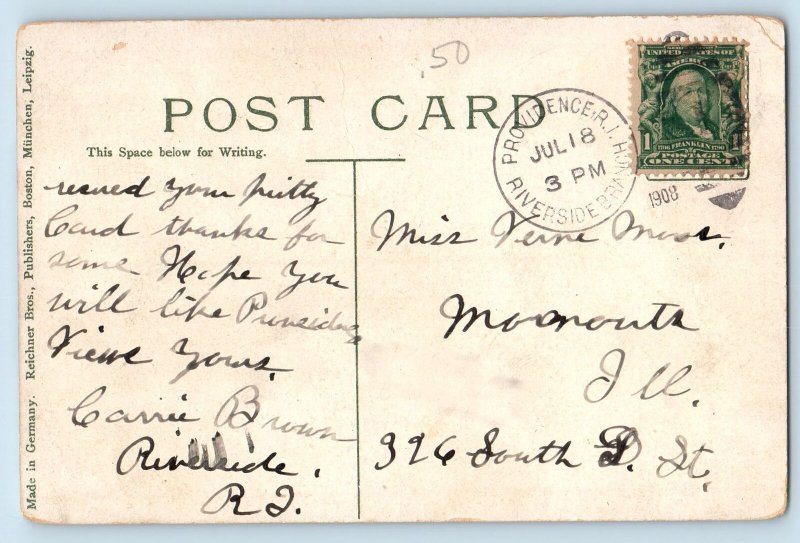 .50
POST CARD
This Space below for Writing.
Made in Germany. Reichner Bros., Publishers, Boston, München, Leipzig.
PROVIDENCE, R.I.
JUL 18
3 PM
RIVERSIDE BRANCH
1908
UNITED STATES OF AMERICA
1 1
1706 FRANKLIN 1790
POSTAGE
ONE CENT
recived your pritty
Card thanks for
same Hope you
will like Providence
Views Yours.
Carrie Brown
Riverside.
R I.
Miss Verne Moss.
Monmouth
Ill.
396 South D St.